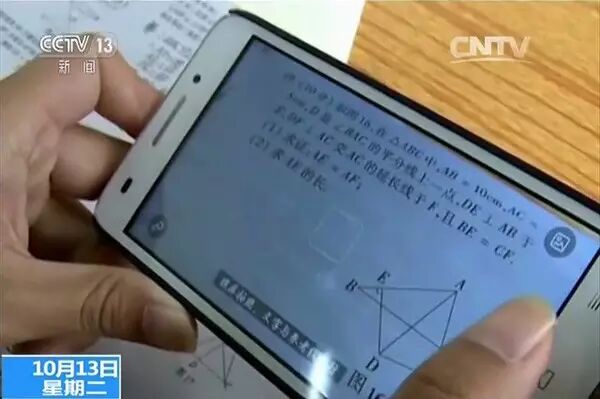 CCTV 13
新闻
CNTV
(10分)如图16,在△ABC中,AB = 10cm,AC =
8cm,D是∠BAC的平分线上一点,DE⊥AB于
E,DF⊥AC交AC的延长线于F,且BE = CF.
(1)求证:AE = AF;
(2)求AE的长.
B
E
A
D
图16
10月13日
星期二